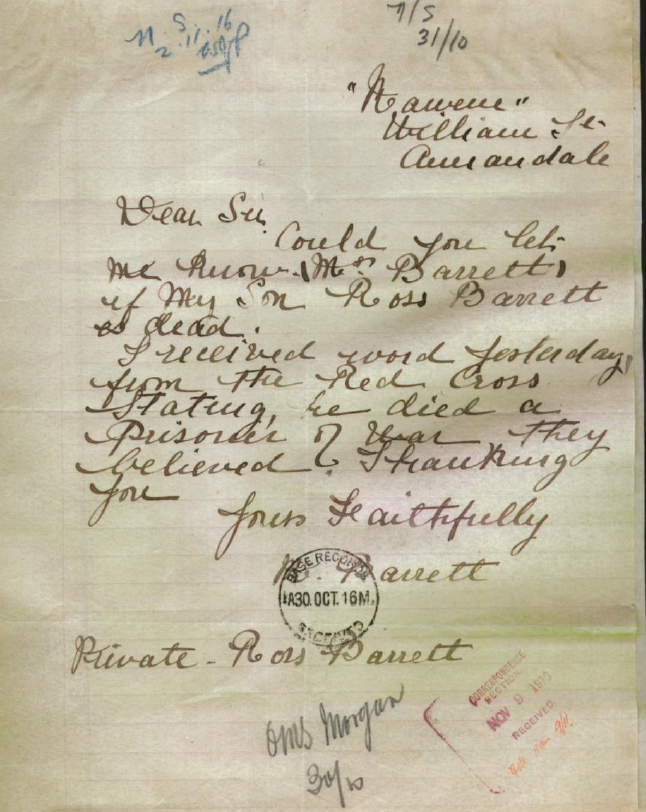 S
2.11.16
7/S
31/10
"Rawene"
William St
Annandale
Dear Sir
Could you let
me know (Mrs Barrett)
if My Son Ross Barrett
is dead.
I received word yesterday,
from the Red Cross
Stating, he died a
Prisoner of War they
believed. Thanking
you
Yours Faithfully
Barrett
BASE RECORDS
A30.OCT.16M.
RECEIVED
Private - Ross Barrett
QMS Morgan
30/10
CORRESPONDENCE
SECTION
NOV 9 1916
RECEIVED